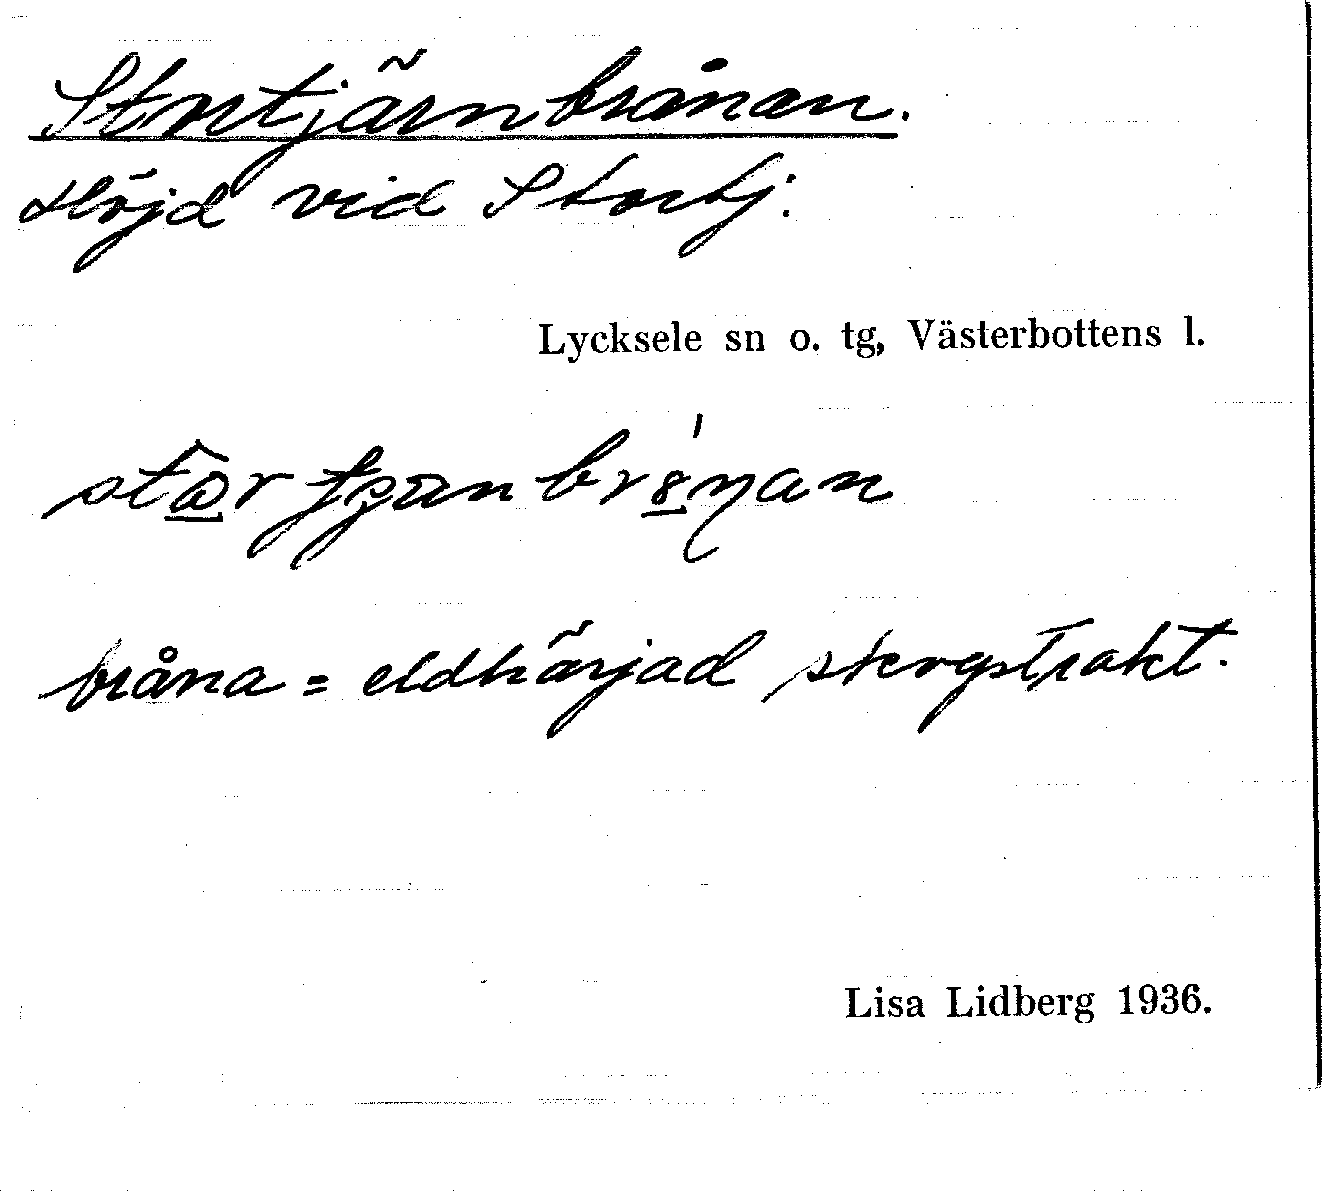 Stortjärnbrånan.
Höjd vid Stortj.
Lycksele sn o. tg, Västerbottens l.
bråna = eldhärjad skogstrakt.
Lisa Lidberg 1936.